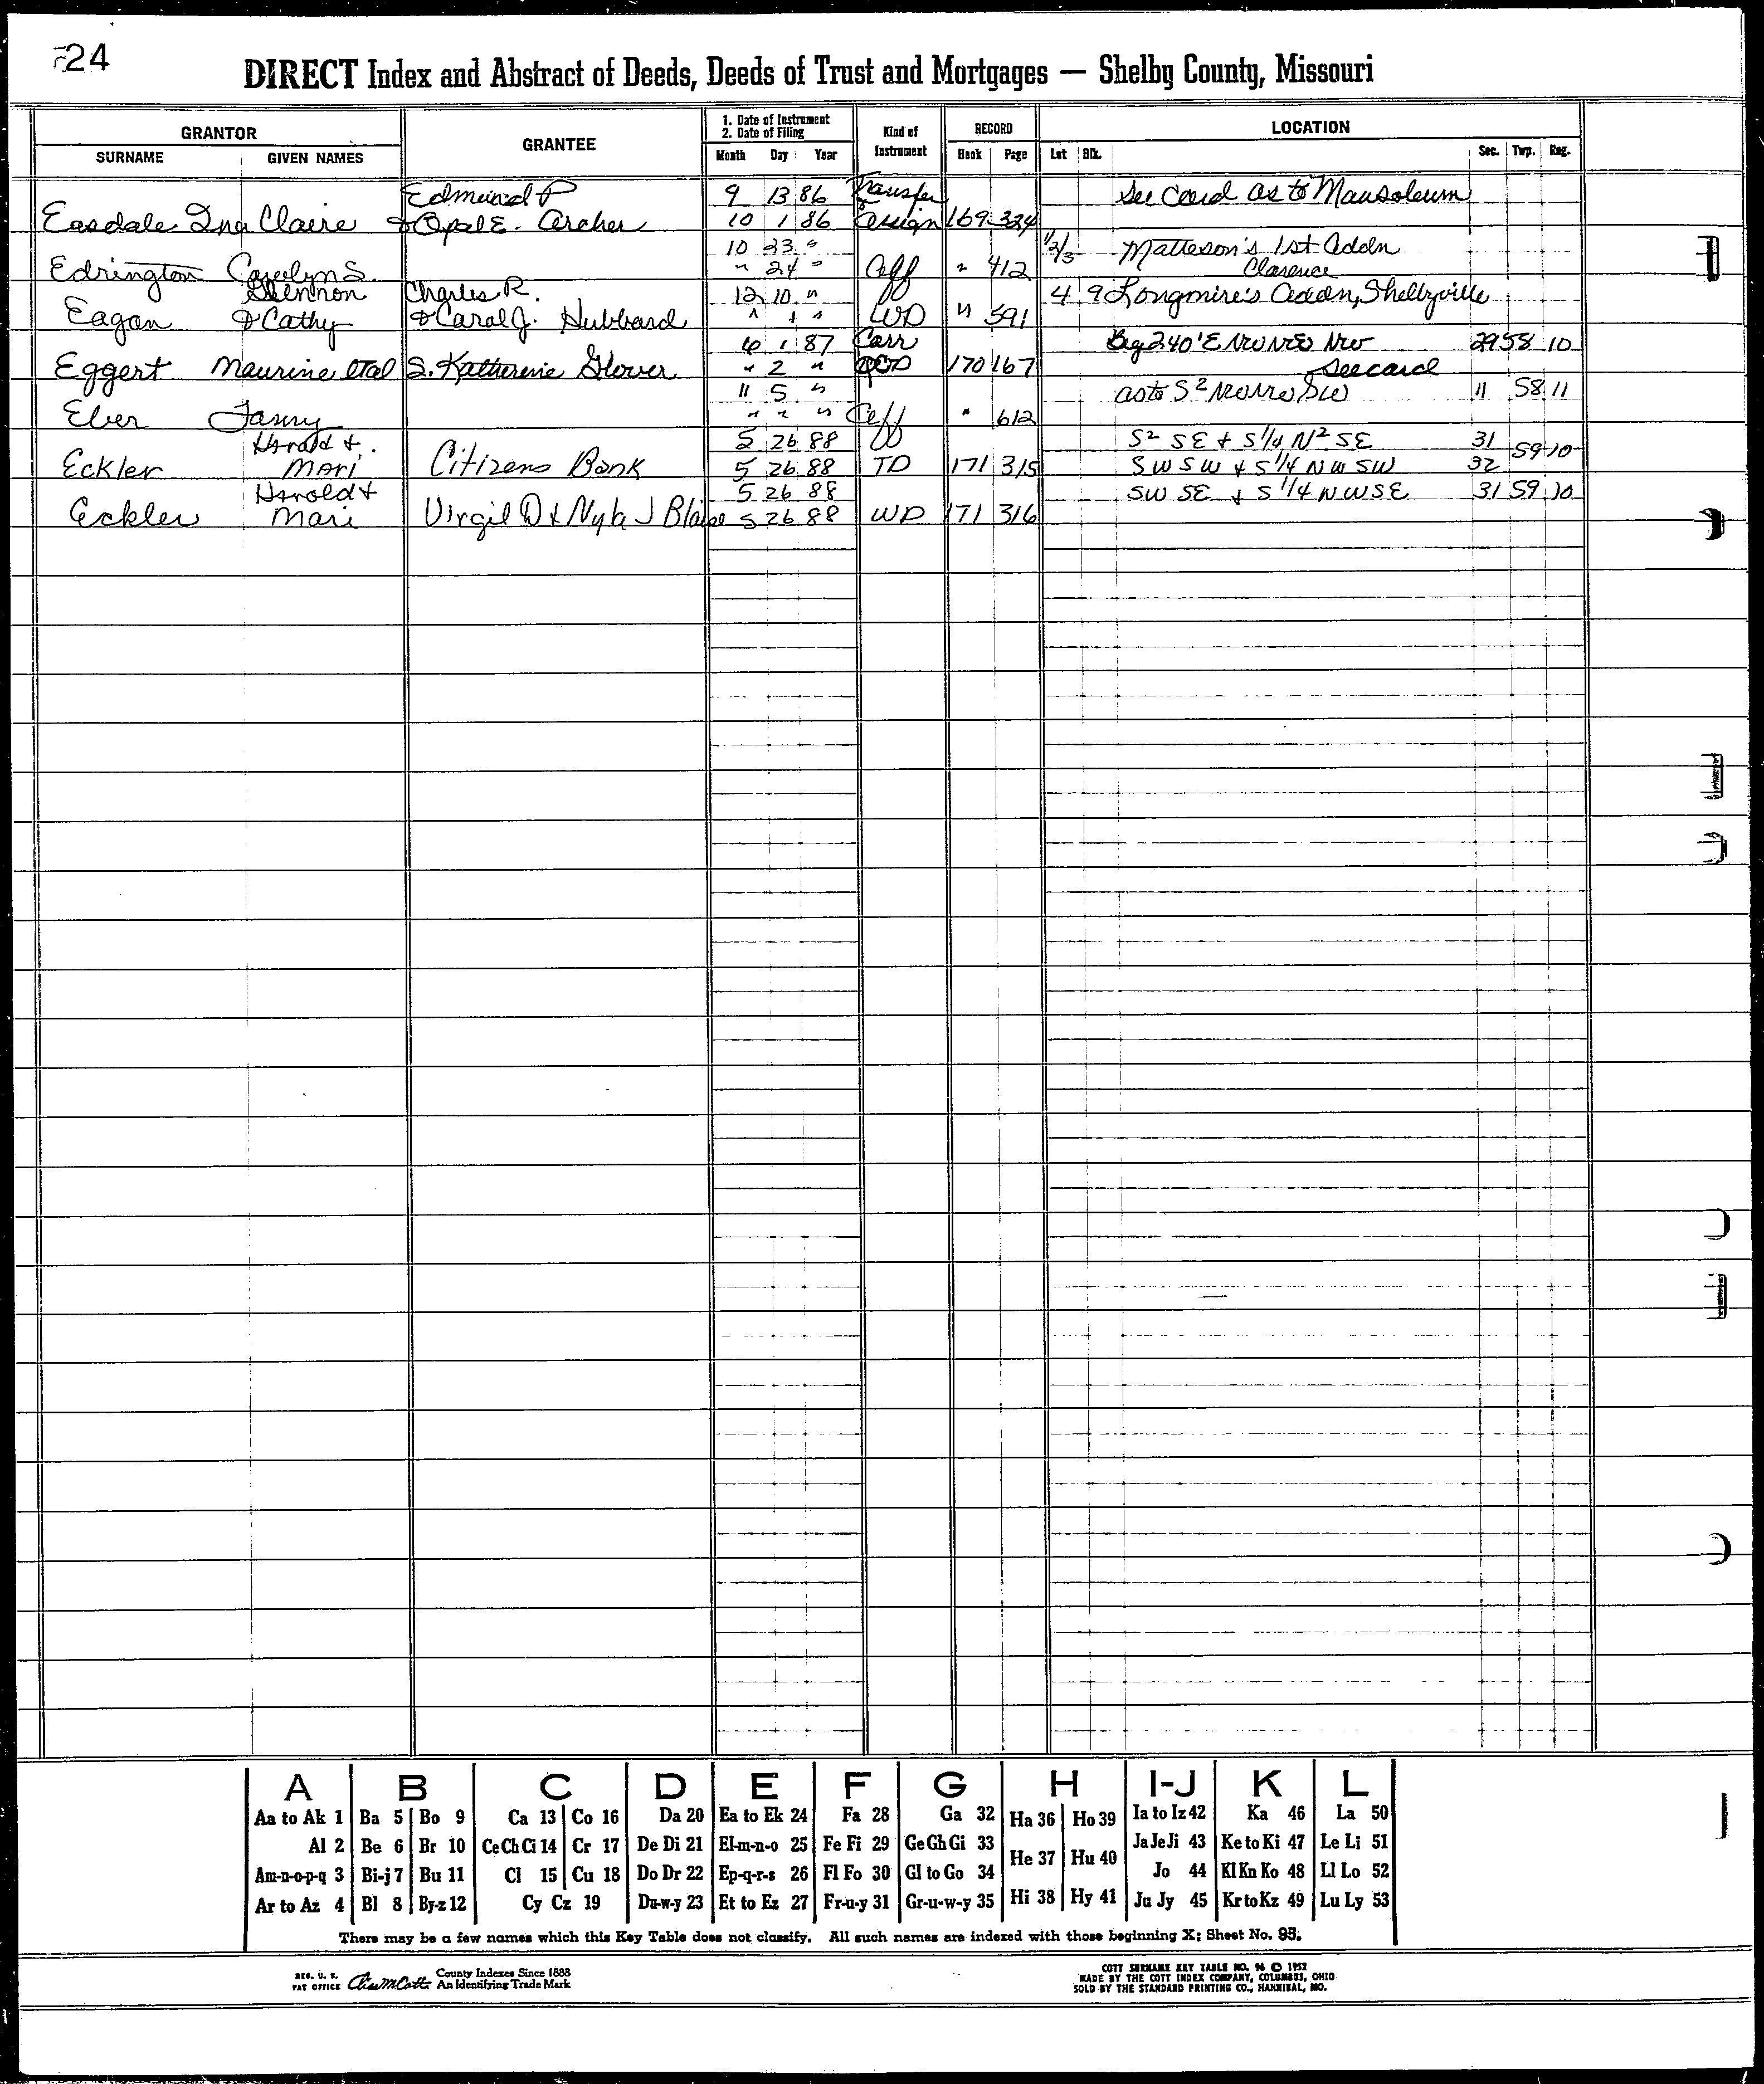 24
DIRECT Index and Abstract of Deeds, Deeds of Trust and Mortgages — Shelby County, Missouri
GRANTOR GRANTEE 1. Date of Instrument 2. Date of Filing Kind of Instrument RECORD LOCATION
SURNAME GIVEN NAMES Month Day Year Book Page Lot Blk. Sec. Twp. Rng.
Edmund P 9 13 86 Transfer See Card as to Mausoleum
Easdale Ina Claire & Opal E. Archer 10 1 86 & Assign 169 324
10 23 " 1/2/3 Matteson's 1st Addn
Edrington Carolyn S. " 24 " Aff " 412 Clarence
Glennon Charles R. 12 10 " 4 9 Longmire's Addn, Shelbyville
Eagan & Cathy & Carol J. Hubbard " 1 " WD " 591
6 1 87 Corr Beg 240' E NW NE NW 29 58 10
Eggert Maurine etal S. Katherine Glover " 2 " QCD 170 167 See card
11 5 " as to S2 NW NE SW 11 58 11
Eber Fanny " " " Aff " 612
Harold & 5 26 88 S2 SE & S 1/4 N2 SE 31 59 10
Eckler Mari Citizens Bank 5 26 88 TD 171 315 SW SW & S 1/4 NW SW 32
Harold & 5 26 88 SW SE & S 1/4 NW SE 31 59 10
Eckler Mari Virgil D & Nyla J Blaise 5 26 88 WD 171 316
A B C D E F G H I-J K L
Aa to Ak 1 Ba 5 Bo 9 Ca 13 Co 16 Da 20 Ea to Ek 24 Fa 28 Ga 32 Ha 36 Ho 39 Ia to Iz 42 Ka 46 La 50
Al 2 Be 6 Br 10 Ce Ch Ci 14 Cr 17 De Di 21 El-m-n-o 25 Fe Fi 29 Ge Gh Gi 33 He 37 Hu 40 Ja Je Ji 43 Ke to Ki 47 Le Li 51
Am-n-o-p-q 3 Bi-j 7 Bu 11 Cl 15 Cu 18 Do Dr 22 Ep-q-r-s 26 Fl Fo 30 Gl to Go 34 Hi 38 Hy 41 Jo 44 Kl Kn Ko 48 Ll Lo 52
Ar to Az 4 Bl 8 By-z 12 Cy Cz 19 Du-w-y 23 Et to Ez 27 Fr-u-y 31 Gr-u-w-y 35 Ju Jy 45 Kr to Kz 49 Lu Ly 53
There may be a few names which this Key Table does not classify. All such names are indexed with those beginning X; Sheet No. 95.
REG. U. S. PAT OFFICE County Indexes Since 1888 An Identifying Trade Mark
COTT SURNAME KEY TABLE NO. 96 © 1952
MADE BY THE COTT INDEX COMPANY, COLUMBUS, OHIO
SOLD BY THE STANDARD PRINTING CO., HANNIBAL, MO.